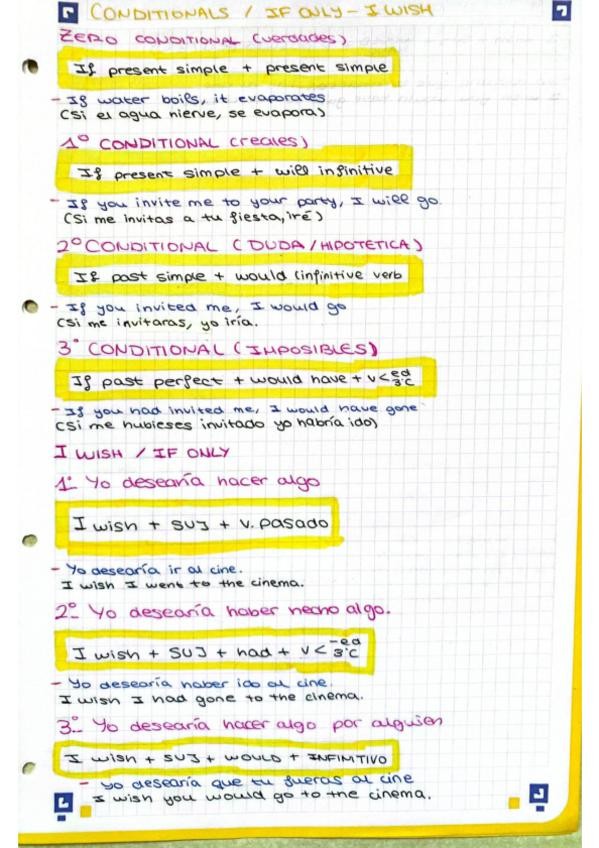 CONDITIONALS / IF ONLY - I WISH
ZERO CONDITIONAL (verdades)
If present simple + present simple
- If water boils, it evaporates
(Si el agua hierve, se evapora)
1º CONDITIONAL (reales)
If present simple + will infinitive
- If you invite me to your party, I will go.
(Si me invitas a tu fiesta, iré)
2º CONDITIONAL (DUDA / HIPOTETICA)
If past simple + would (infinitive verb
- If you invited me, I would go
(Si me invitaras, yo iría.
3º CONDITIONAL (IMPOSIBLES)
If past perfect + would have + v < ed 3ªC
- If you had invited me, I would have gone
(Si me hubieses invitado yo habría ido)
I WISH / IF ONLY
1º Yo desearía hacer algo
I wish + SUJ + V. pasado
- Yo desearía ir al cine.
I wish I went to the cinema.
2º Yo desearía haber hecho algo.
I wish + SUJ + had + V < -ed 3ªC
- Yo desearía haber ido al cine.
I wish I had gone to the cinema.
3º Yo desearía hacer algo por alguien
I wish + SUJ + WOULD + INFIMITIVO
- Yo desearía que tu fueras al cine
I wish you would go to the cinema.